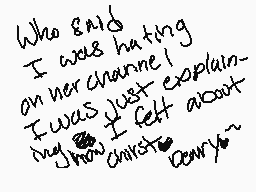 Who said
I was hating
on her channel
I was just explain-
ing how I felt about
christ♥ Denry♥~